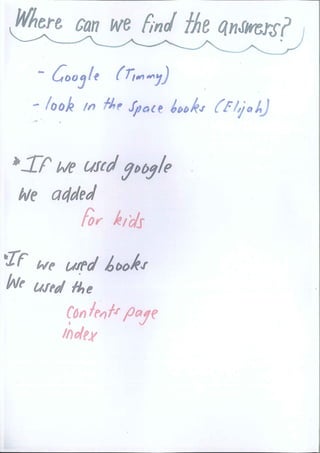 Where can we find the answers?
- Google (Timmy)
- look in the space books (Elijah)
* If we used google
we added
for kids
* If we used books
We used the
contents page
index